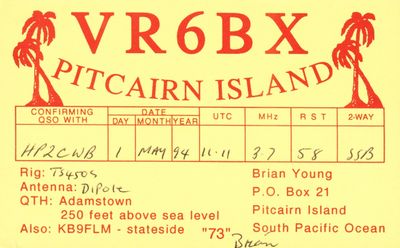 VR6BX
PITCAIRN ISLAND
CONFIRMING QSO WITH DATE DAY MONTH YEAR UTC MHz R S T 2-WAY
HP2CWB 1 MAY 94 11-11 3.7 58 SSB
Rig: TS450S Brian Young
Antenna: DIPOLE P.O. Box 21
QTH: Adamstown Pitcairn Island
250 feet above sea level South Pacific Ocean
Also: KB9FLM - stateside "73" Brian